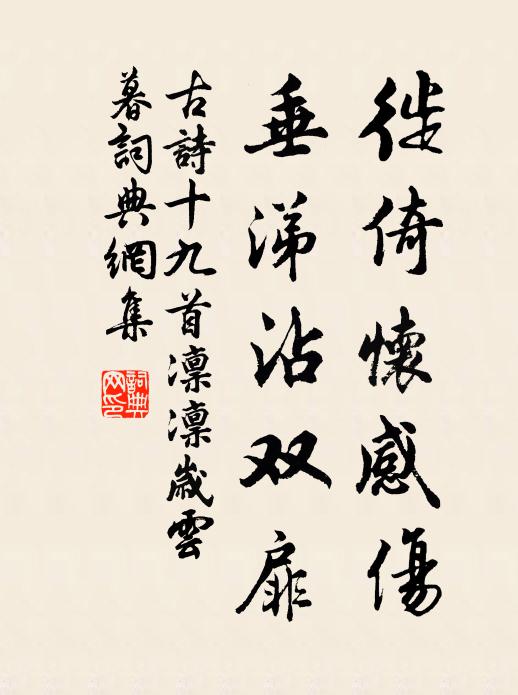 徙倚懷感傷
垂涕沾双扉
古詩十九首凛凛歲雲
暮詞典網集
詞典网印